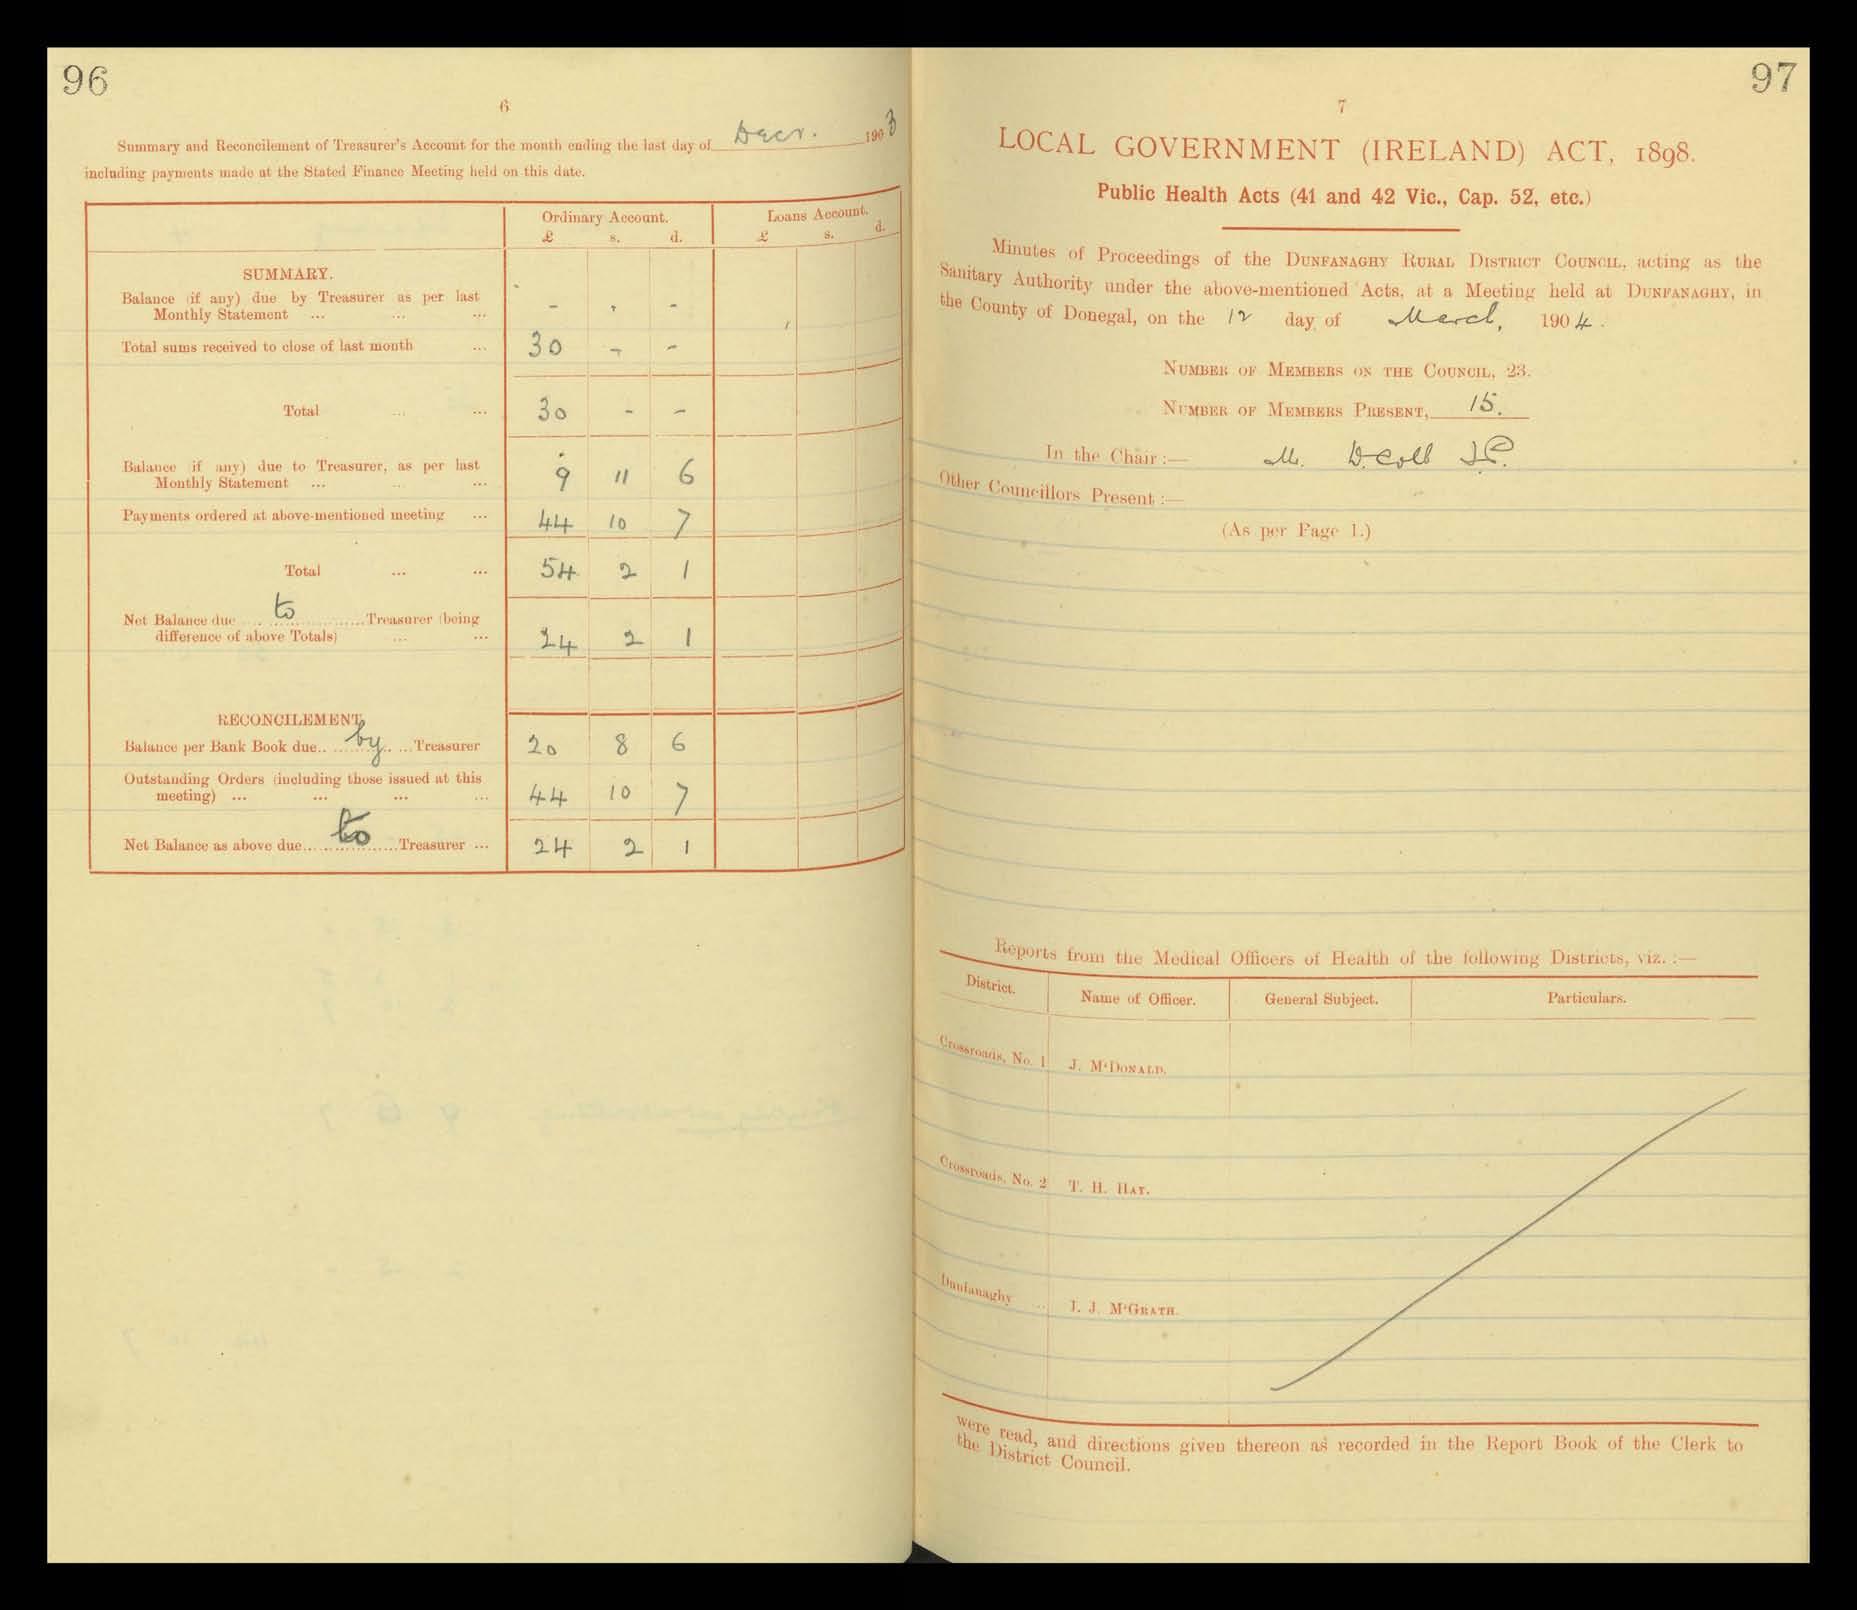 96
6
Summary and Reconcilement of Treasurer's Account for the month ending the last day of Decr. 1903
including payments made at the Stated Finance Meeting held on this date.
Ordinary Account. Loans Account.
£ s. d. £ s. d.
SUMMARY.
Balance (if any) due by Treasurer as per last
Monthly Statement ... ... ... - - -
Total sums received to close of last month ... 30 - -
Total ... ... 30 - -
Balance (if any) due to Treasurer, as per last
Monthly Statement ... ... ... 9 11 6
Payments ordered at above-mentioned meeting ... 44 10 7
Total ... ... 54 2 1
Net Balance due to Treasurer (being
difference of above Totals) ... ... 24 2 1
RECONCILEMENT.
Balance per Bank Book due by Treasurer 20 8 6
Outstanding Orders (including those issued at this
meeting) ... ... ... ... 44 10 7
Net Balance as above due to Treasurer ... 24 2 1
97
7
LOCAL GOVERNMENT (IRELAND) ACT, 1898.
Public Health Acts (41 and 42 Vic., Cap. 52, etc.)
Minutes of Proceedings of the DUNFANAGHY RURAL DISTRICT COUNCIL, acting as the
Sanitary Authority under the above-mentioned Acts, at a Meeting held at DUNFANAGHY, in
the County of Donegal, on the 12 day of March, 1904.
NUMBER OF MEMBERS ON THE COUNCIL, 23.
NUMBER OF MEMBERS PRESENT, 15.
In the Chair :— M. D. Coll J.P.
Other Councillors Present :—
(As per Page 1.)
Reports from the Medical Officers of Health of the following Districts, viz. :—
District. Name of Officer. General Subject. Particulars.
Crossroads, No. 1 J. M'DONALD.
Crossroads, No. 2 T. H. HAY.
Dunfanaghy .. J. J. M'GRATH.
were read, and directions given thereon as recorded in the Report Book of the Clerk to
the District Council.